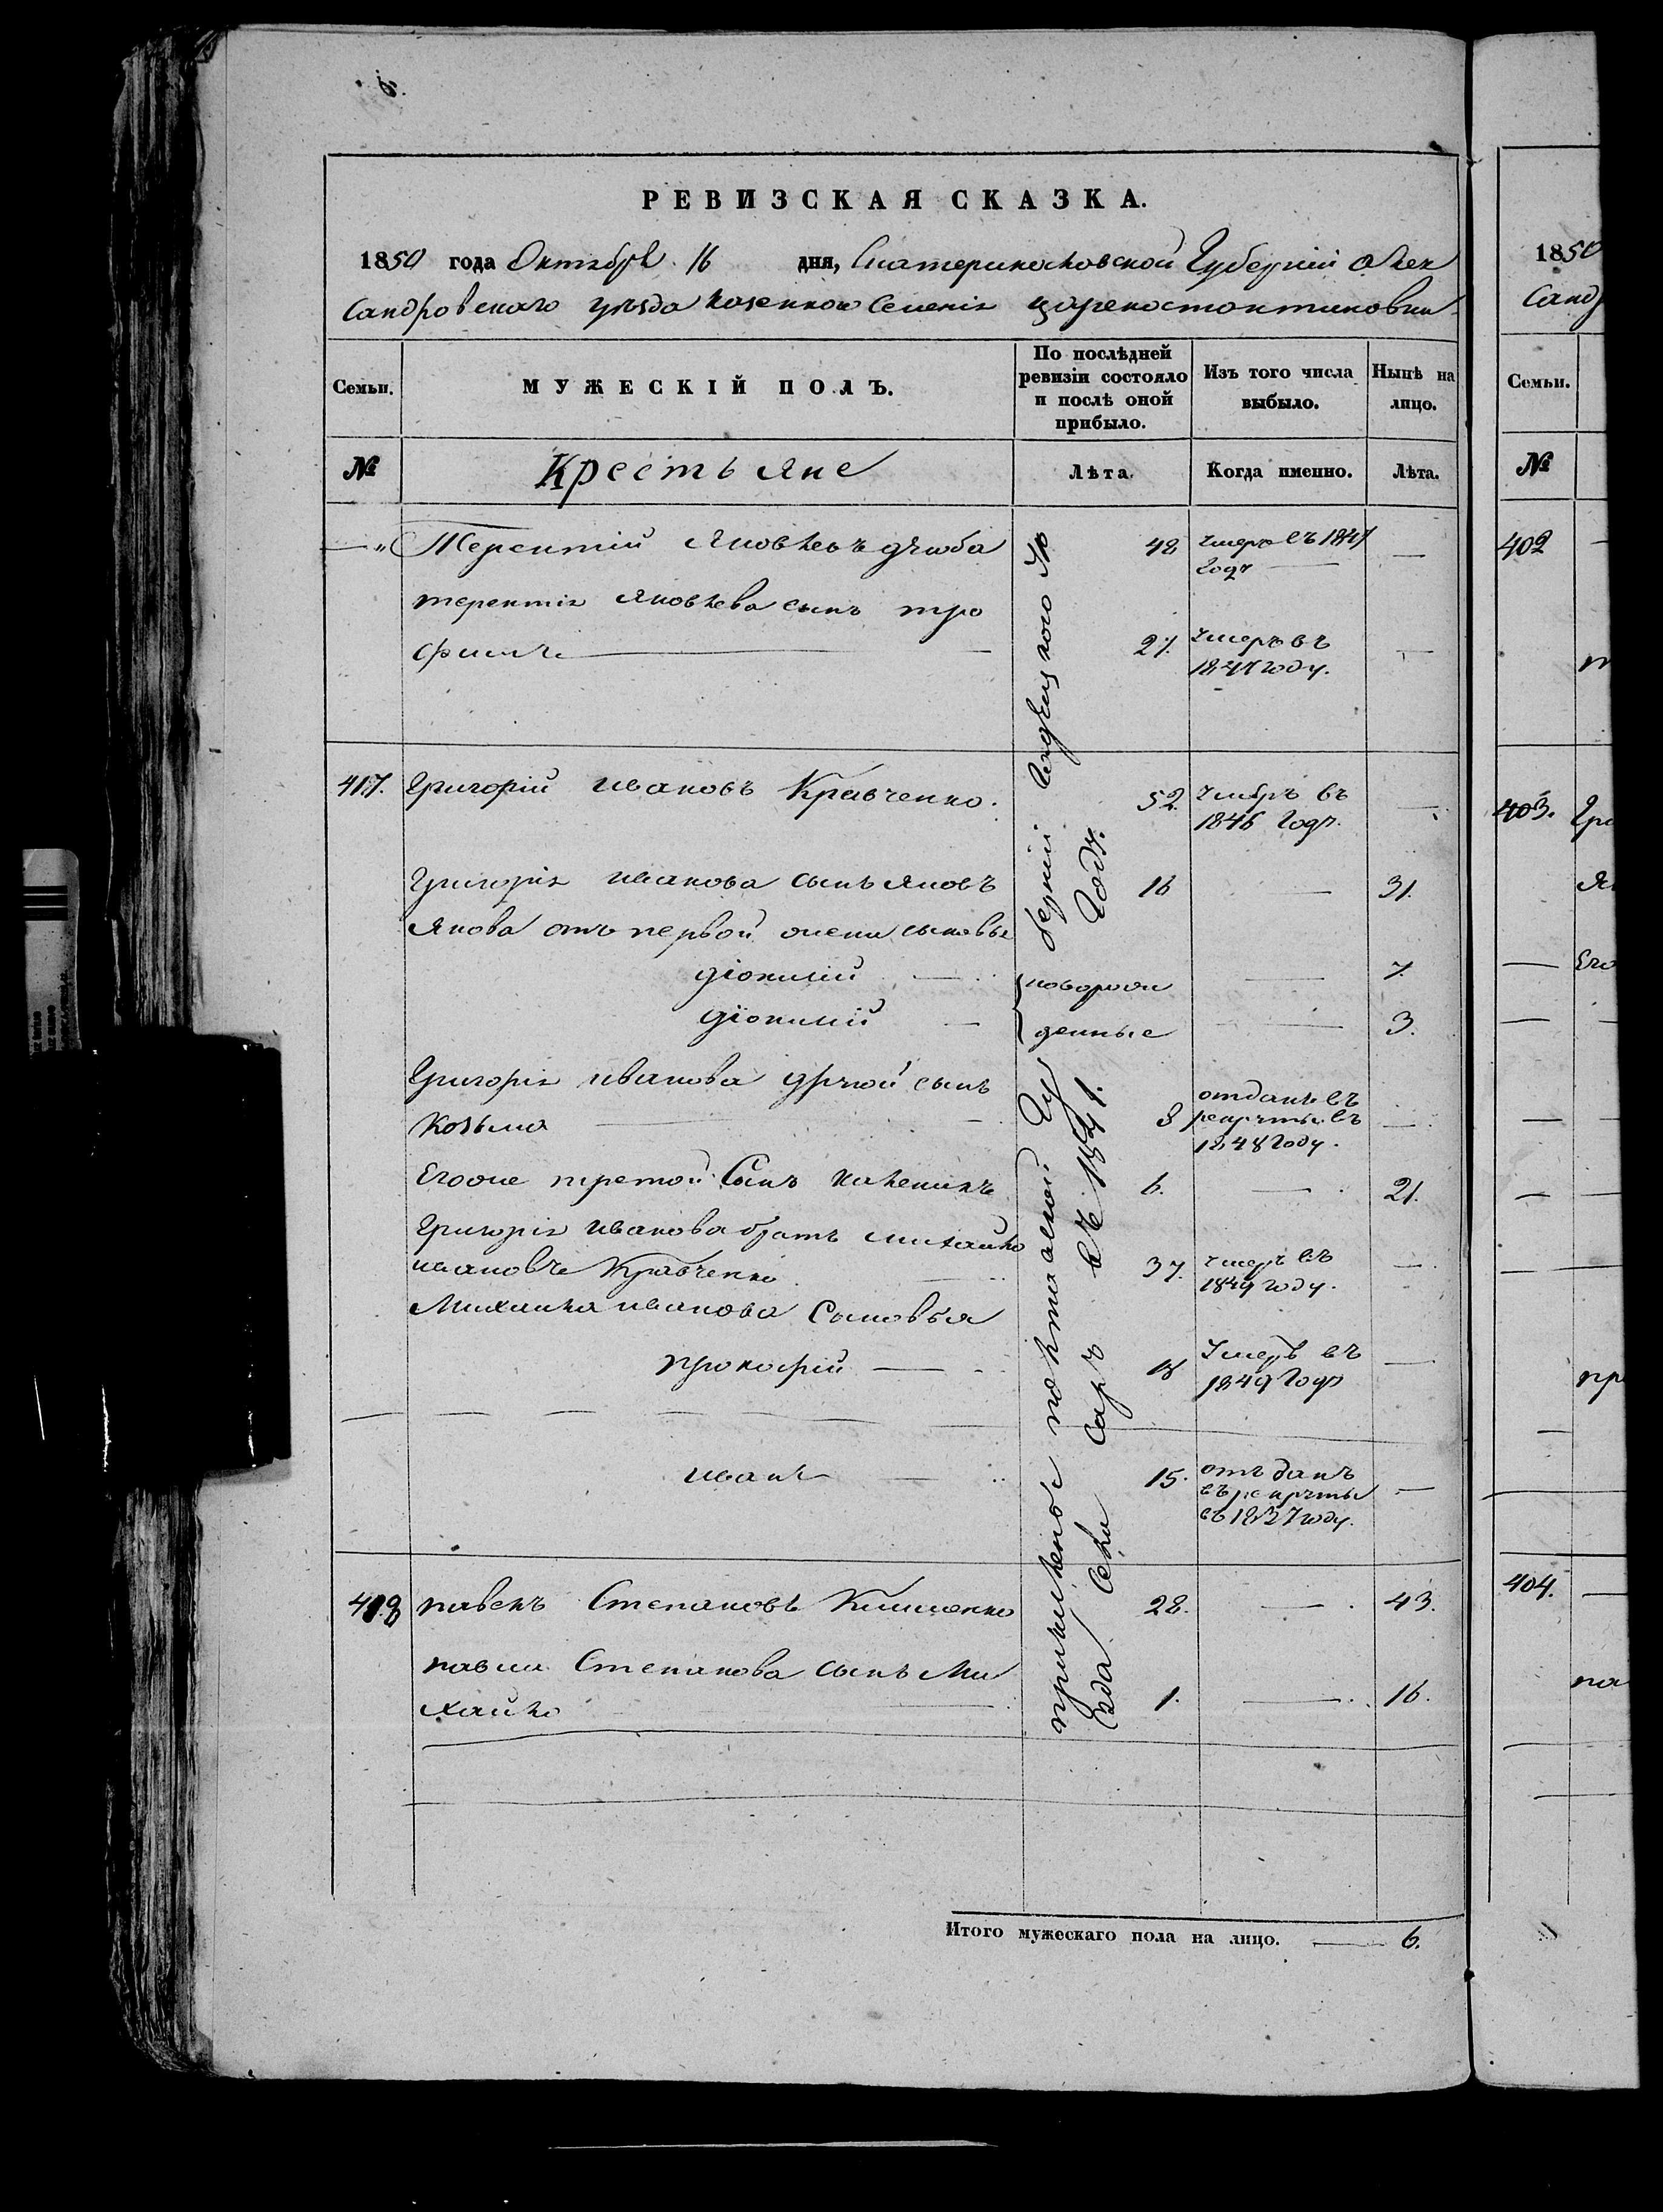 РЕВИЗСКАЯ СКАЗКА.
1850 года Октября 16 дня, Екатеринославской Губерніи Алек
сандровскаго уѣзда казеннаго Селенія
Семьи.
МУЖЕСКІЙ ПОЛЪ.
По послѣдней ревизіи состояло и послѣ оной прибыло.
Изъ того числа выбыло.
Нынѣ на лицо.
№
Крестьяне
Лѣта.
Когда именно.
Лѣта.
Терентій Яковлевъ дзюба 48 умеръ въ 1847 году —
терентія Яковлева сынъ тро
фимъ — 27. умеръ въ 1847 году. —
417. Григорій Ивановъ Кравченко. 52. умеръ въ 1846 году. —
Григорія иванова сынъ Яковъ 16 — 31.
Якова отъ первой жены сыновья
діонисій — новорож — 7.
діонисій — денные — 3.
Григорія иванова другой сынъ
Козьма — 8 отданъ въ рекруты въ 1848 году. —
Егоже третой Сынъ 6. — 21.
Григорія иванова братъ михайло
ивановъ Кравченко. 37. умеръ въ 1849 году. —
Михайла иванова Сыновья
прокофій — 18 Умеръ въ 1849 году —
иванъ — 15. отъданъ въ рекруты въ 1837 году. —
418 павелъ Степановъ Клименко 28. — 43.
павла Степанова сынъ Ми
хайло 1. — 16.
Итого мужескаго пола на лицо. — 6.
1850
Санд
Семьи.
№
402
403. Гри
Его
пр
404.
па